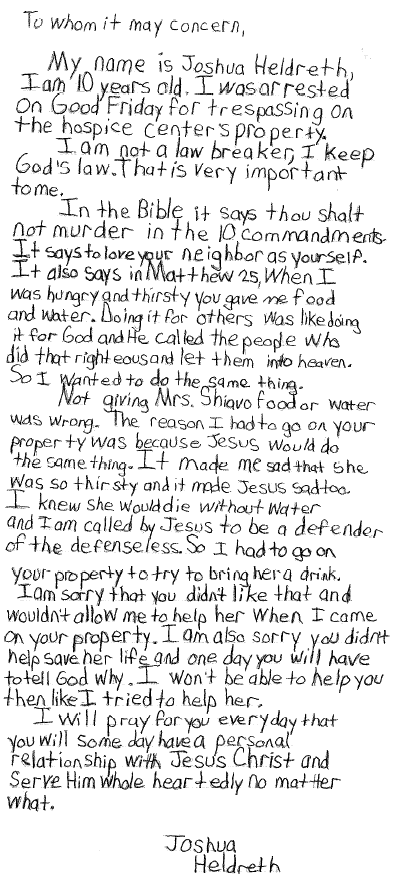 To whom it may concern,
My name is Joshua Heldreth,
I am 10 years old. I was arrested
on Good Friday for trespassing on
the hospice center's property.
I am not a law breaker, I keep
God's law. That is very important
to me.
In the Bible it says thou shalt
not murder in the 10 commandments.
It says to love your neighbor as yourself.
It also says in Matthew 25, When I
was hungry and thirsty you gave me food
and water. Doing it for others was like doing
it for God and He called the people who
did that righteous and let them into heaven.
So I wanted to do the same thing.
Not giving Mrs. Shiavo food or water
was wrong. The reason I had to go on your
property was because Jesus would do
the same thing. It made me sad that she
was so thirsty and it made Jesus sad too.
I knew she would die without water
and I am called by Jesus to be a defender
of the defenseless. So I had to go on
your property to try to bring her a drink.
I am sorry that you didn't like that and
wouldn't allow me to help her when I came
on your property. I am also sorry you didn't
help save her life and one day you will have
to tell God why. I won't be able to help you
then like I tried to help her.
I will pray for you everyday that
you will some day have a personal
relationship with Jesus Christ and
serve Him whole heartedly no matter
what.
Joshua
Heldreth